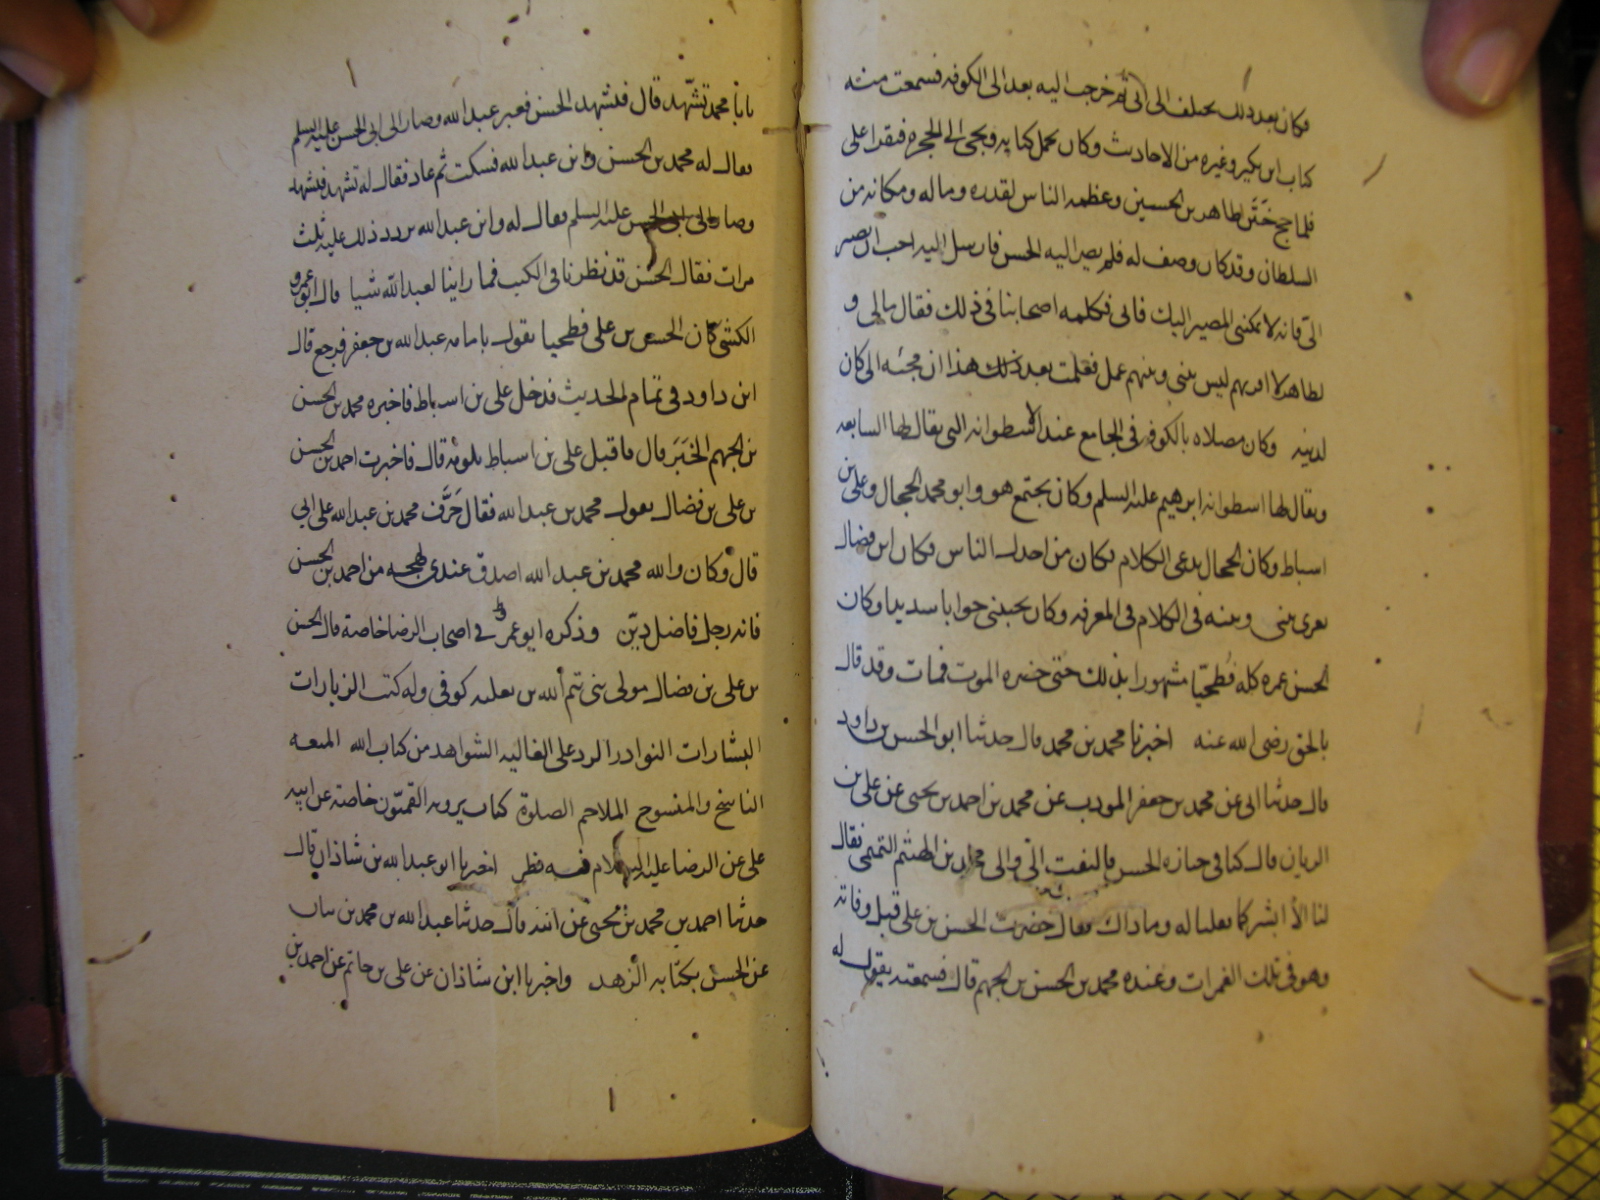 فكان بعد ذلك يختلف الى ابى ثم خرجت اليه بعد الى الكوفه فسمعت منه
كتاب ابن بكير وغيره من الاحاديث وكان يحمل كتابه ويجى الى الحجره فيقراه على
فلما حج ختن طاهر بن الحسين وعظمه الناس لقدره وماله ومكانه من
السلطان وقد كان وصف له فلم يصر اليه الحسن فارسل اليه احب ان تصير
الى فانه لا يمكننى المصير اليك فابى فكلمه اصحابنا فى ذلك فقال مالى و
لطاهر لا اقربهم ليس بينى وبينهم عمل فعلمت بعد ذلك هذا ان مجيئه الى كان
لدينه وكان مصلاه بالكوفه فى الجامع عند الاسطوانه التى يقال لها السابعه
ويقال لها اسطوانه ابرهيم عليه السلم وكان يجتمع هو وابو محمد الحجال وعلى بن
اسباط وكان الحجال يدعى الكلام فكان من اجدل الناس فكان ابن فضال
يغرى بينى وبينه فى الكلام فى المعرفه وكان يجيبنى جوابا سديدا وكان
الحسن عمره كله فطحيا مشهورا بذلك حتى حضره الموت فمات وقد قال
بالحق رضى الله عنه اخبرنا محمد بن محمد قال حدثنا ابو الحسن بن داود
قال حدثنا ابى عن محمد بن جعفر المودب عن محمد بن احمد بن يحيى عن على بن
الريان قال كنا فى جنازه الحسن فالتفت الى والى محمد بن الهيثم التميمى فقال
لنا الا ابشركما فقلنا له وما ذاك فقال حضرت الحسن بن على قبل وفاته
وهو فى تلك الغمرات وعنده محمد بن الحسن بن الجهم قال فسمعته يقول له
يا با محمد تشهد قال فتشهد الحسن فعبر عبد الله وصار الى ابى الحسن عليه السلم
فقال له محمد بن الحسن واين عبد الله فسكت ثم عاد فقال له تشهد فتشهد
وصار الى ابى الحسن عليه السلم فقال له واين عبد الله يردد ذلك عليه ثلث
مرات فقال الحسن قد نظرنا فى الكتب فما راينا لعبد الله شيا قال ابو عمرو
الكشى كان الحسن بن على فطحيا يقول بامامه عبد الله بن جعفر فرجع قال
ابن داود فى تمام الحديث فدخل على بن اسباط فاخبره محمد بن الحسن
بن الجهم الخبر قال فاقبل على بن اسباط يلومه قال فاخبرت احمد بن الحسن
بن على بن فضال بقول محمد بن عبد الله فقال حرف محمد بن عبد الله على ابى
قال وكان والله محمد بن عبد الله اصدق عندى لهجه من احمد بن الحسن
فانه رجل فاضل دين وذكره ابو عمرو فى اصحاب الرضا خاصة قال الحسن
بن على بن فضال مولى بنى تيم الله بن ثعلبه كوفى وله كتب الزيارات
البشارات النوادر الرد على الغاليه الشواهد من كتاب الله المتعه
الناسخ والمنسوخ الملاحم الصلوة كتاب يرويه القميون خاصة عن ابيه
على عن الرضا عليه السلام فيه نظر اخبرنا ابو عبد الله بن شاذان قال
حدثنا احمد بن محمد بن يحيى عن ابيه قال حدثنا عبد الله بن محمد بن بنان
عن الحسن بكتابه الزهد واخبرنا ابن شاذان عن على بن حاتم عن احمد بن